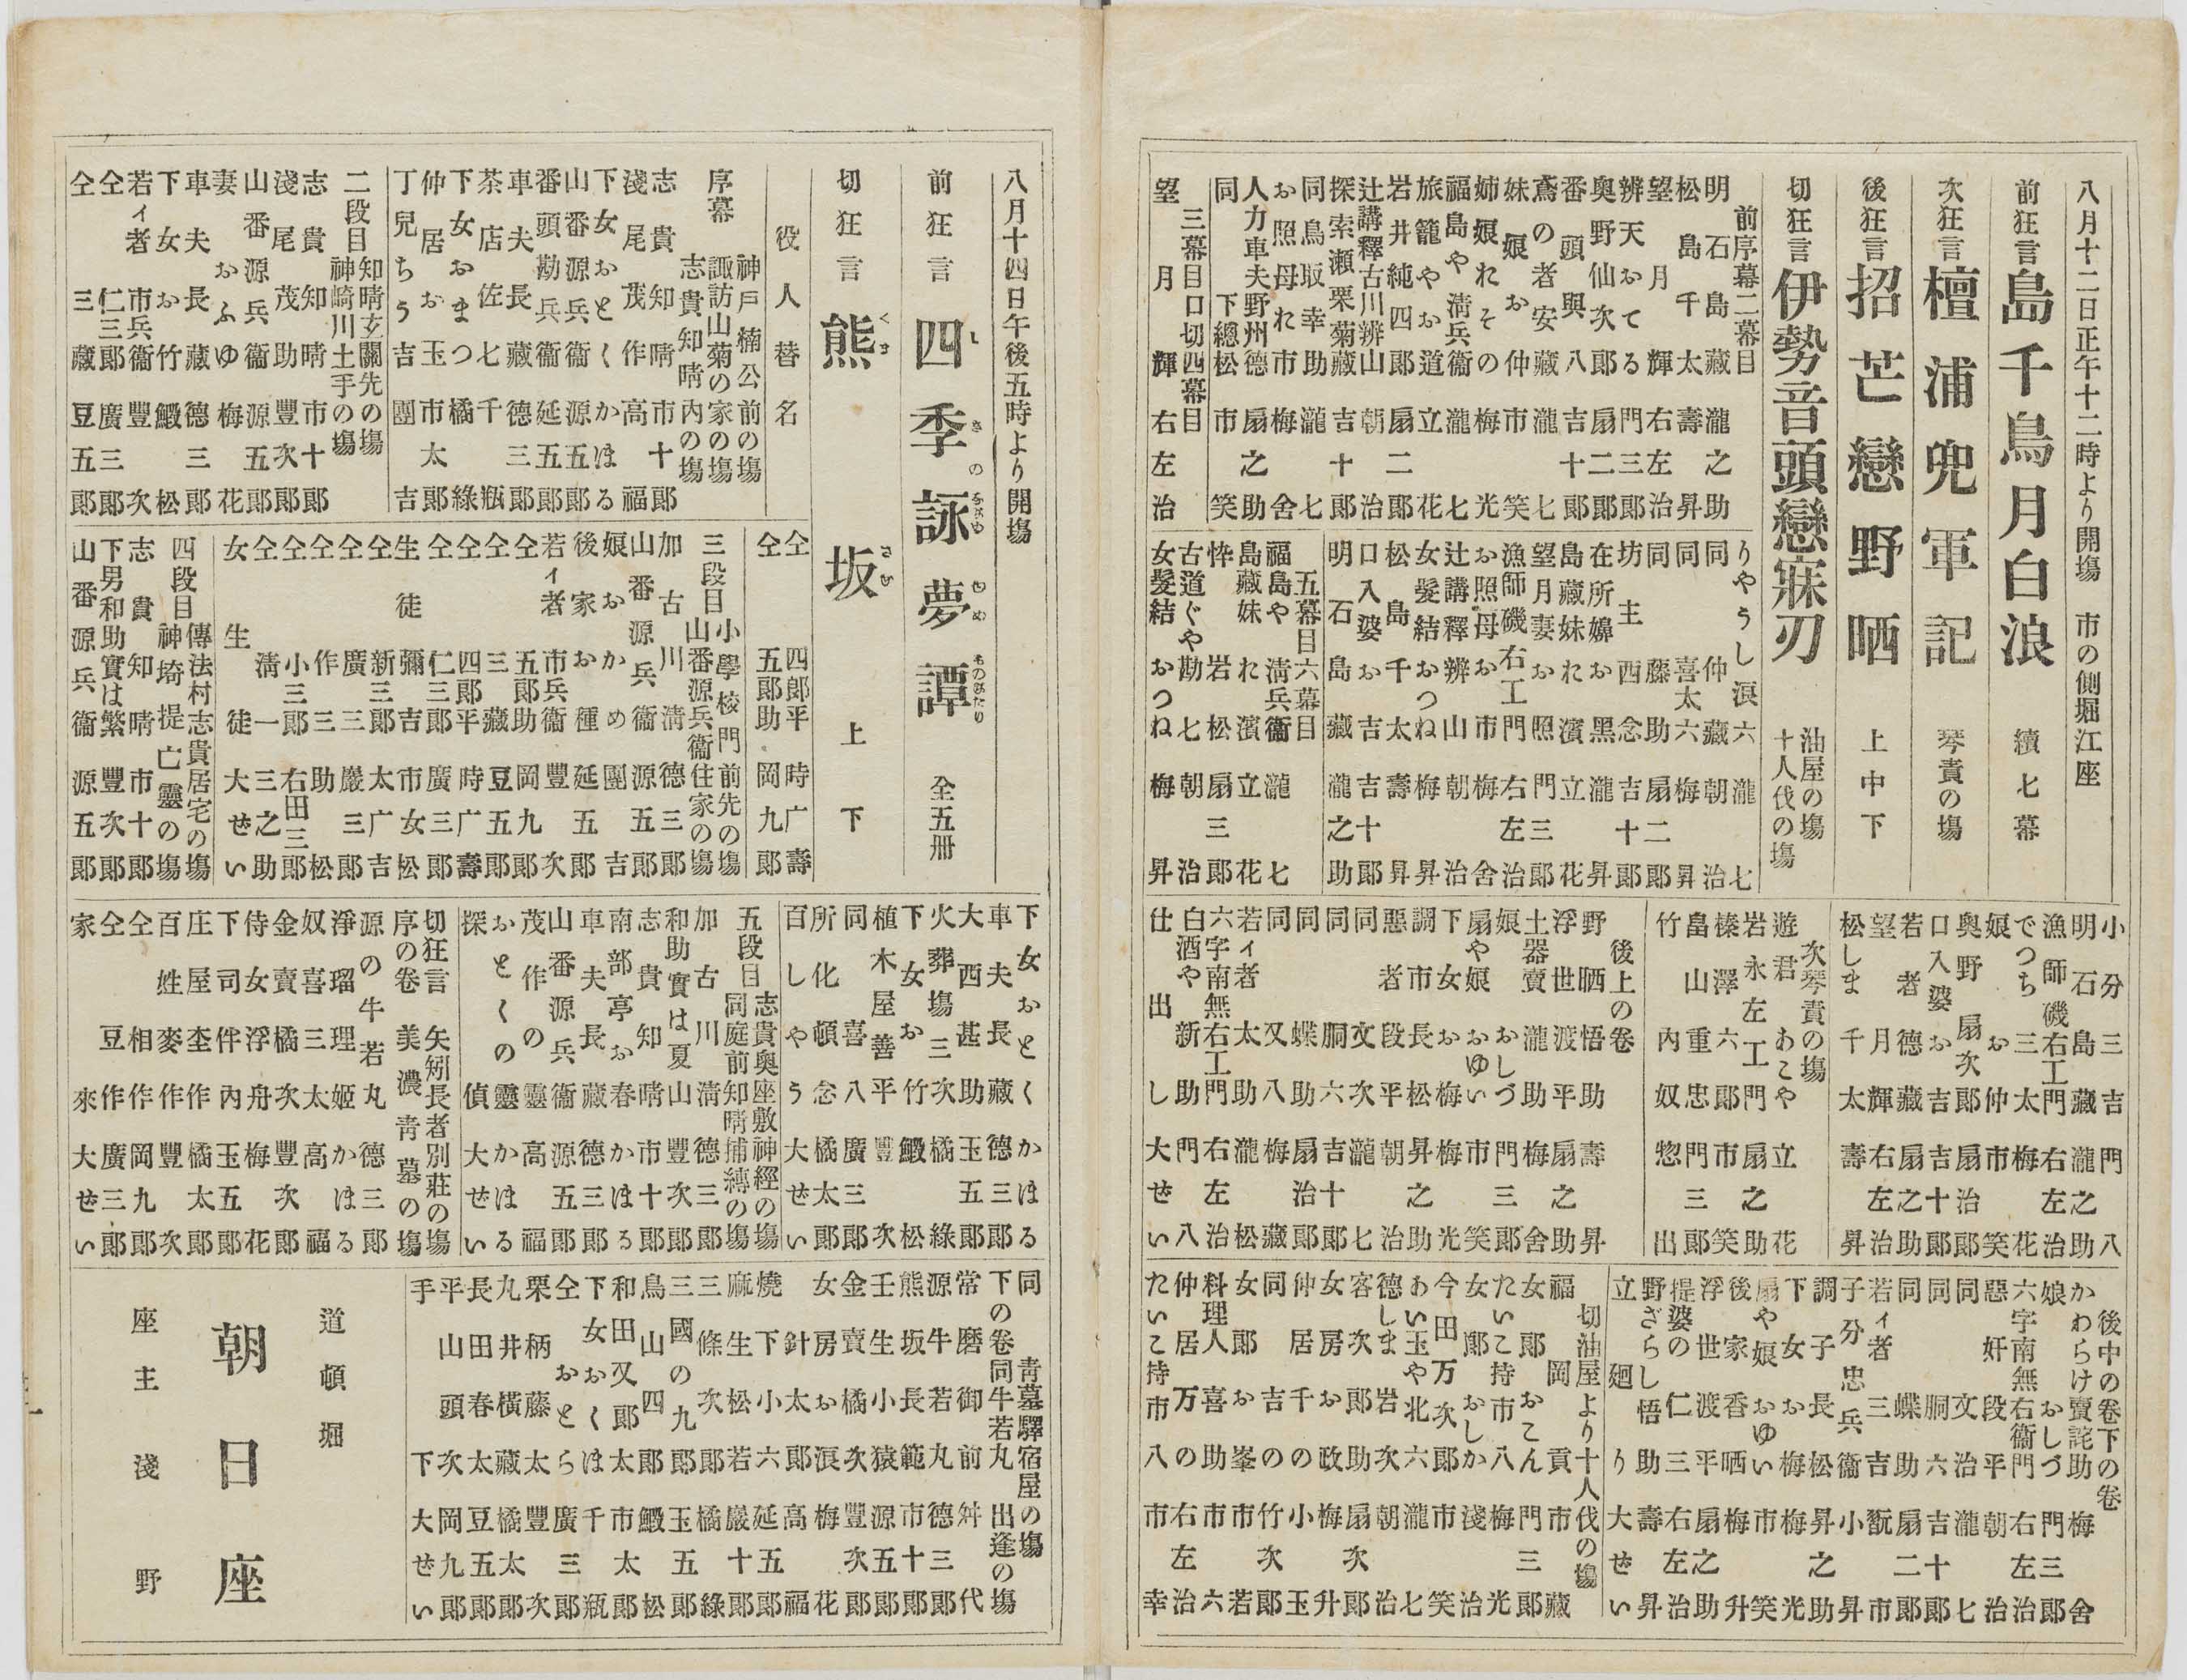 八月十二日正午十二時より開塲　市の側堀江座
前狂言　島千鳥月白浪　續七幕
次狂言　檀浦兜軍記　琴責の塲
後狂言　招芒戀野晒　上中下
切狂言　伊勢音頭戀寐刃　油屋の塲　十人伐の塲
前序幕二幕目
明石島藏　瀧之助
松島千太　壽昇
望月輝　右左治
辨天おてる　門三郎
奥野仙次郎　扇二郎
番頭與八　吉十郎
鳶の者安藏　瀧七
妹娘お仲　市笑
姉娘れその　梅光
福島や淸兵衞　瀧七
旅籠やお道　立花
岩井純四郎　扇二郎
辻講釋古川辨山　朝治
探索瀬栗菊藏　吉十郎
同鳥取幸助　瀧七
お照母れ市　梅舍
人力車夫野州德　扇之助
同下總松　市笑
三幕目口切四幕目
望月輝　右左治
りやうし濵六　瀧七
同仲藏　朝治
同喜太六　梅昇
同藤助　扇二郎
坊主西念　吉十郎
在所嬶お黑　瀧昇
島藏妹れ濵　立花
望月妻お照　門三郎
漁師磯右工門　右左治
お照母お市　梅舍
辻講釋辨山　朝治
女髮結おつね　梅昇
松島千太　壽昇
口入婆お吉　吉十郎
明石島藏　瀧之助
五幕目六幕目
福島や淸兵衞　瀧七
島藏妹れ濵　立花
悴岩松　扇三郎
古道ぐや勘七　朝治
女髮結おつね　梅昇
小分三吉　門八
明石島藏　瀧之助
漁師磯右工門　右左治
でつち三太　梅花
娘お仲　市笑
奥野扇次郎　扇治郎
口入婆お吉　吉十郎
若者德藏　扇之助
望月輝　右左治
松しま千太　壽昇
次琴責の塲
遊君あこや　立花
岩永左工門　扇之助
榛澤六郎　市笑
畠山重忠　門三郎
竹内奴　惣出
後上の卷
野晒悟助　壽昇
浮世渡平　扇之助
土器賣瀧助　梅舍
娘おしづ　門三郎
扇や娘おゆい　市笑
下女お梅　梅光
調市長松　昇之助
惡者段平　朝治
同文次　瀧七
同胴六　吉十郎
同蝶助　扇治郎
同又八　梅藏
若イ者太助　瀧松
六字南無右工門　右左治
白酒や新助　門八
仕出し　大ぜい
後中の卷下の卷
かわらけ賣詫助　梅舍
娘おしづ　門三郎
六字南無右衞門　右左治
惡奸段平　朝治
同文治　瀧七
同胴六　吉十郎
同蝶助　扇二郎
若イ者三吉　翫市
子分忠兵衞　小昇
調子長松　昇之助
下女お梅　梅光
扇や娘おゆい　市笑
後家香晒　梅升
浮世渡平　扇之助
提婆の仁三　右左治
野ざらし悟助　壽昇
立廻り　大ぜい
切油屋より十人伐の塲
福岡貢　市藏
女郎おこん　門三郎
たいこ持市八　梅光
女郎おしか　淺治
今田万次郎　市笑
あい玉や北六　瀧七
德しま岩次　朝治
客次郎助　扇次郎
女房お政　梅升
仲居千の　小玉
同吉の　竹次郎
女郎お峯　市若
料理人喜助　市六
仲居万の　右左治
たいこ持市八　市幸
八月十四日午後五時より開塲
前狂言　四季詠夢譚　全五册
切狂言　熊坂　上下
役人替名
序幕　神戸楠公前の塲　諏訪山菊の家の塲　志貴知晴内の塲
志貴知晴　市十郎
淺尾茂作　高福
下女おとく　かほる
山番源兵衞　源五郎
番頭勘兵衞　延五郎
車夫長藏　德三郎
茶店佐七　千瓶
下女おまつ　橘綠
仲居お玉　市太郎
丁兒ちう吉　團吉
二段目　知晴玄關先の塲　神崎川土手の塲
志貴知晴　市十郎
淺尾茂助　豐次郎
山番源兵衞　源五郎
妻おふゆ　梅花
車夫長藏　德三郎
下女お竹　鰕松
若イ者市兵衞　豐次
仝仁三郎　廣三郎
仝三藏　豆五郎
仝四郎平　時广壽
仝五郎助　岡九郎
三段目　小學校門前先の塲　山番源兵衞住家の塲
加古川淸　德三郎
山番源兵衞　源五郎
娘おかめ　團吉
後家お種　延五郎
若イ者市兵衞　豐次
仝五郎助　岡九郎
仝三藏　豆五郎
仝四郎平　時广壽
仝仁三郎　廣三郎
生徒彌吉　市女松
仝新三郎　太广吉
仝廣三　巖三郎
仝作三　助松
仝小三郎　右田三郎
仝淸一　三之助
女生徒　大ぜい
四段目　傳法村志貴居宅の塲　神埼提亡靈の塲
志貴知晴　市十郎
下男和助實は繁　豐次郎
山番源兵衞　源五郎
下女おとく　かほる
車夫長藏　德三郎
大西甚助　玉五郎
火葬塲三次　橘綠
下女お竹　鰕松
植木屋善平　豐次
同喜八　廣三郎
所化頓念　橘太郎
百しやう　大ぜい
五段目　志貴奥座敷神經の塲　同庭前知晴捕縛の塲
加古川淸　德三郎
和助實は夏山　豐次郎
志貴知晴　市十郎
南部亭お春　かほる
車夫長藏　德三郎
山番源兵衞　源五郎
茂作の靈　高福
おとくの靈　かほる
探偵　大ぜい
切狂言　矢矧長者別莊の塲
序の卷　美濃靑墓の塲
源の牛若丸　德三郎
淨瑠理姬　かほる
奴喜三太　高福
金賣橘次　豐次郎
侍女浮舟　梅花
下司伴內　玉五郎
庄屋杢作　橘太郎
百姓麥作　豐次
仝相作　岡九郎
仝豆作　廣三郎
家來　大ぜい
下の卷　靑墓驛宿屋の塲　同牛若丸出逢の塲
同常磨御前　舛代
源牛若丸　德三郎
熊坂長範　市十郎
壬生小猿　源五郎
金賣橘次　豐次郎
女房お濵　梅花
針太郎　高福
燒下小六　延五郎
麻生松若　巖十郎
三條次郎　橘綠
三國の九郎　玉五郎
鳥山四郎　鰕松
和田又郎太　市太郎
下女おくは　千瓶
仝おとら　廣三郎
栗柄藤太　豐次
九井橫藏　橘太郎
長田春太　豆五郎
平山頭次　岡九郎
手下　大ぜい
道頓堀
朝日座
座主　淺野